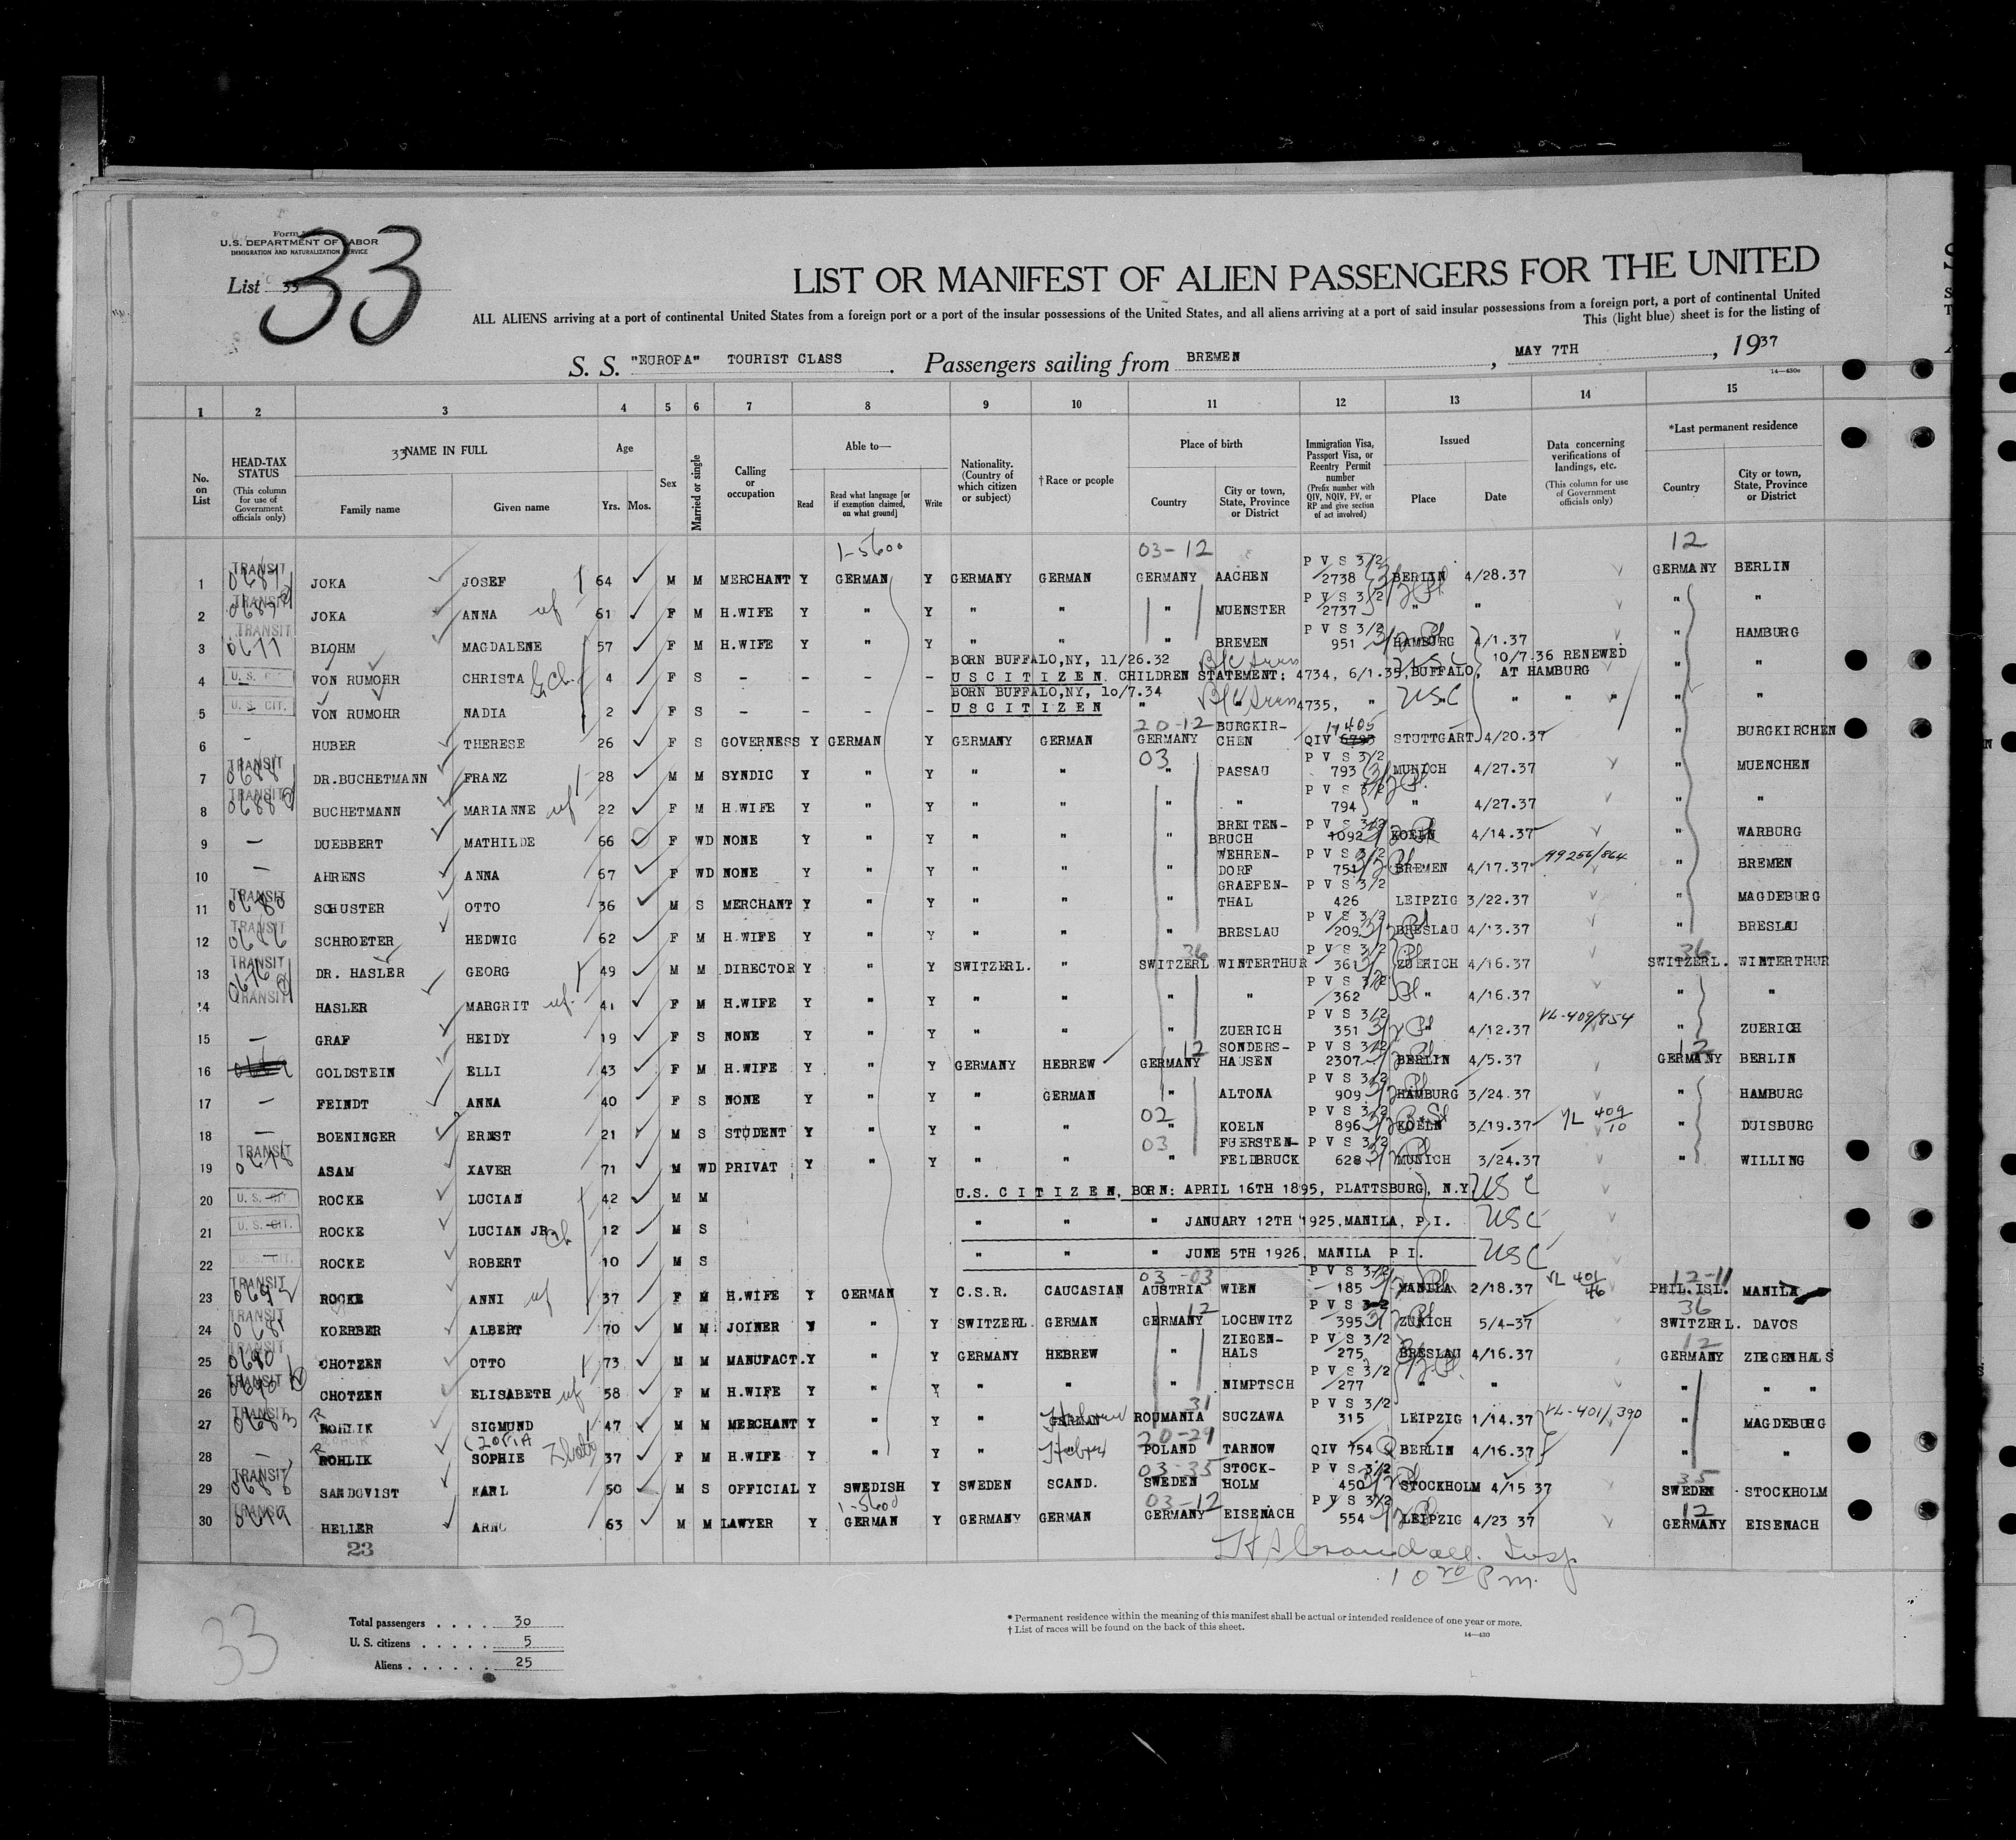 Form
U.S. DEPARTMENT OF LABOR
IMMIGRATION AND NATURALIZATION SERVICE
List 33
33
LIST OR MANIFEST OF ALIEN PASSENGERS FOR THE UNITED
ALL ALIENS arriving at a port of continental United States from a foreign port or a port of the insular possessions of the United States, and all aliens arriving at a port of said insular possessions from a foreign port, a port of continental United
This (light blue) sheet is for the listing of
S. S. "EUROPA" TOURIST CLASS . Passengers sailing from BREMEN , MAY 7TH , 1937
14—430e
1 2 3 4 5 6 7 8 9 10 11 12 13 14 15
No. on List
HEAD-TAX STATUS (This column for use of Government officials only)
33 NAME IN FULL
Family name Given name
Age Yrs. Mos.
Sex
Married or single
Calling or occupation
Able to— Read Read what language [or if exemption claimed, on what ground] Write
Nationality. (Country of which citizen or subject)
†Race or people
Place of birth Country City or town, State, Province or District
Immigration Visa, Passport Visa, or Reentry Permit number (Prefix number with QIV, NQIV, PV, or RP and give section of act involved)
Issued Place Date
Data concerning verifications of landings, etc. (This column for use of Government officials only)
*Last permanent residence Country City or town, State, Province or District
1-5600 03-12 12
1 TRANSIT JOKA JOSEF 64 M M MERCHANT Y GERMAN Y GERMANY GERMAN GERMANY AACHEN P V S 3/2 2738 BERLIN 4/28.37 GERMANY BERLIN
2 TRANSIT JOKA ANNA 61 F M H.WIFE Y " Y " " " MUENSTER P V S 3/2 2737 " " " "
3 TRANSIT 0677 BLOHM MAGDALENE 57 F M H.WIFE Y " Y " " " BREMEN P V S 3/2 951 HAMBURG 4/1.37 " HAMBURG
BORN BUFFALO,NY, 11/26.32 10/7.36 RENEWED
4 U.S. CIT. VON RUMOHR CHRISTA 4 F S - - - - U S C I T I Z E N. CHILDREN STATEMENT: 4734, 6/1.35, BUFFALO, AT HAMBURG " "
BORN BUFFALO,NY, 10/7.34
5 U.S. CIT. VON RUMOHR NADIA 2 F S - - - - U S C I T I Z E N " " 4735, " USC " " " " "
6 - HUBER THERESE 26 F S GOVERNESS Y GERMAN Y GERMANY GERMAN 20-12 GERMANY BURGKIRCHEN 17405 QIV STUTTGART 4/20.37 " BURGKIRCHEN
7 TRANSIT DR.BUCHETMANN FRANZ 28 M M SYNDIC Y " Y " " 03 " PASSAU P V S 3/2 793 MUNICH 4/27.37 " MUENCHEN
8 TRANSIT BUCHETMANN MARIANNE 22 F M H.WIFE Y " Y " " " " P V S 3/2 794 " 4/27.37 " "
9 — DUEBBERT MATHILDE 66 F WD NONE Y " Y " " " BREITEN-BRUCH P V S 3/2 1092 KOELN 4/14.37 " WARBURG
10 — AHRENS ANNA 67 F WD NONE Y " Y " " " WEHREN-DORF P V S 3/2 751 BREMEN 4/17.37 99256/864 " BREMEN
11 TRANSIT SCHUSTER OTTO 36 M S MERCHANT Y " Y " " " GRAEFEN-THAL P V S 3/2 426 LEIPZIG 3/22.37 " MAGDEBURG
12 TRANSIT 0686 SCHROETER HEDWIG 62 F M H.WIFE Y " Y " " " BRESLAU P V S 3/2 209 BRESLAU 4/13.37 " BRESLAU
13 TRANSIT 0676 DR. HASLER GEORG 49 M M DIRECTOR Y " Y SWITZERL. " 36 SWITZERL WINTERTHUR P V S 3/2 361 ZUERICH 4/16.37 36 SWITZERL. WINTERTHUR
14 TRANSIT HASLER MARGRIT 41 F M H.WIFE Y " Y " " " " P V S 3/2 362 " 4/16.37 " "
15 — GRAF HEIDY 19 F S NONE Y " Y " " " ZUERICH P V S 3/2 351 " 4/12.37 VL-409/854 " ZUERICH
16 GOLDSTEIN ELLI 43 F M H.WIFE Y " Y GERMANY HEBREW 12 GERMANY SONDERS-HAUSEN P V S 3/2 2307 BERLIN 4/5.37 12 GERMANY BERLIN
17 — FEINDT ANNA 40 F S NONE Y " Y " GERMAN " ALTONA P V S 3/2 909 HAMBURG 3/24.37 " HAMBURG
18 — BOENINGER ERNST 21 M S STUDENT Y " Y " " 02 " KOELN P V S 3/2 896 KOELN 3/19.37 VL 409/10 " DUISBURG
19 TRANSIT 0678 ASAM XAVER 71 M WD PRIVAT Y " Y " " 03 " FUERSTEN-FELDBRUCK P V S 3/2 628 MUNICH 3/24.37 " WILLING
20 U.S. CIT. ROCKE LUCIAN 42 M M U.S. C I T I Z E N, BORN: APRIL 16TH 1895, PLATTSBURG, N.Y. USC
21 U.S. CIT. ROCKE LUCIAN JR. 12 M S " " " JANUARY 12TH 1925, MANILA, P.I. USC
22 CIT. ROCKE ROBERT 10 M S " " " JUNE 5TH 1926, MANILA P I. USC
23 TRANSIT 0692 ROCKE ANNI 37 F M H.WIFE Y GERMAN Y C.S.R. CAUCASIAN 03-03 AUSTRIA WIEN P V S 3/2 185 MANILA 2/18.37 VL 401/46 12-11 PHIL.ISL. MANILA
24 TRANSIT 0681 KOERBER ALBERT 70 M M JOINER Y " Y SWITZERL GERMAN 12 GERMANY LOCHWITZ P V S 3-2 395 ZURICH 5/4-37 36 SWITZERL. DAVOS
25 TRANSIT 0690 CHOTZEN OTTO 73 M M MANUFACT. Y " Y GERMANY HEBREW " ZIEGEN-HALS P V S 3/2 275 BRESLAU 4/16.37 12 GERMANY ZIEGENHALS
26 TRANSIT 0690 CHOTZEN ELISABETH 58 F M H.WIFE Y " Y " " " NIMPTSCH P V S 3/2 277 " " " " "
27 TRANSIT 0683 ROHLIK SIGMUND 47 M M MERCHANT Y " Y " GERMAN Hebrew 31 ROUMANIA SUCZAWA P V S 3/2 315 LEIPZIG 1/14.37 VL-401/390 " MAGDEBURG
28 — ROHLIK (ZOFIA SOPHIE 37 F M H.WIFE Y " Y " Hebrew 20-29 POLAND TARNOW QIV 754 BERLIN 4/16.37 " "
29 TRANSIT SANDQVIST KARL 50 M S OFFICIAL Y SWEDISH Y SWEDEN SCAND. 03-35 SWEDEN STOCK-HOLM P V S 3/2 450 STOCKHOLM 4/15 37 35 SWEDEN STOCKHOLM
30 0679 HELLER ARNO 63 M M LAWYER Y 1-5600 GERMAN Y GERMANY GERMAN 03-12 GERMANY EISENACH P V S 3/2 554 LEIPZIG 4/23 37 12 GERMANY EISENACH
23
Insp
10 P m.
33
Total passengers . . . . 30
U. S. citizens . . . . . 5
Aliens . . . . . . 25
* Permanent residence within the meaning of this manifest shall be actual or intended residence of one year or more.
† List of races will be found on the back of this sheet.
14—430